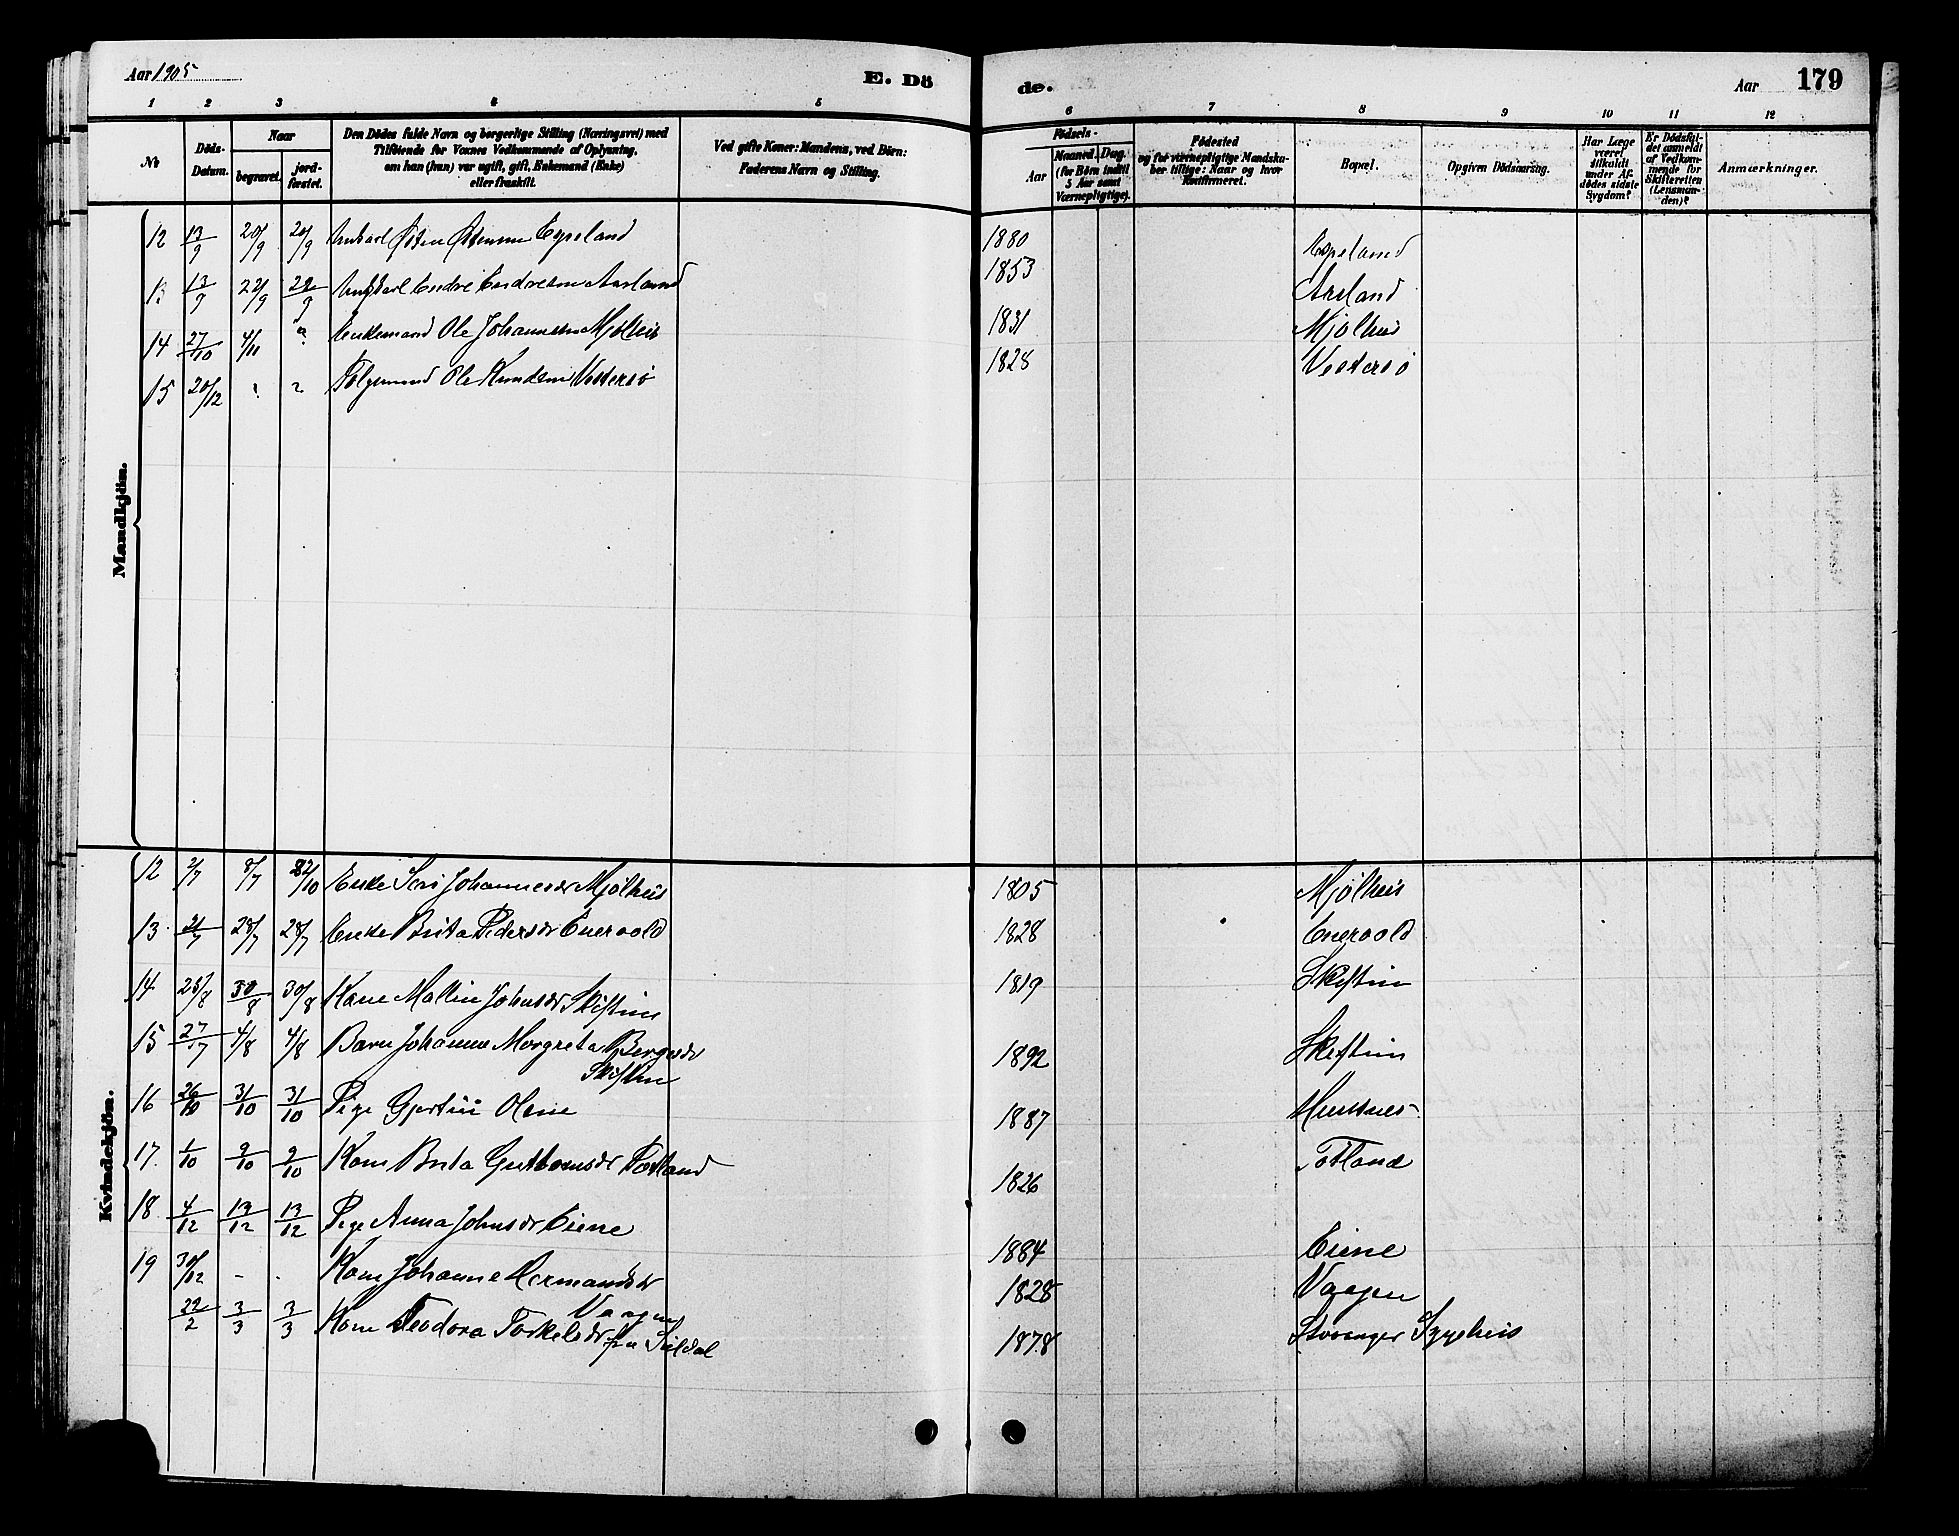 Aar 1905
E. Dö
de.
Aar
179
1 2 3 4 5 6 7 8 9 10 11 12
No
Döds-Datum.
Naar
begravet.
jord-fæstet.
Den Dödes fulde Navn og borgerlige Stilling (Næringsvei) med
Tilföiende for Voxnes Vedkommende af Oplysning,
om han (hun) var ugift, gift, Enkemand (Enke)
eller fraskilt.
Ved gifte Koner: Mandens, ved Börn:
Faderens Navn og Stilling.
Födsels-
Aar
Maaned. Dag.
(for Börn indtil
5 Aar samt
Værnepligtige).
Födested
og for værnepligtige Mandska-
ber tillige: Naar og hvor
Konfirmeret.
Bopæl.
Opgiven Dödsaarsag.
Har Læge
været
tilkaldt
under Af-
dödes sidste
Sygdom?
Er Dödsfal-
det anmeldt
af Vedkom-
mende for
Skifteretten
(Lensman-
den)?
Anmærkninger.
Mandkjön.
12 13/9 20/9 20/9 Ungkarl Østen Østensen Espeland 1880 Espeland
13 13/9 22/9 22/9 Ungkarl Endre Endresen Aarland 1853 Aarland
14 27/10 4/11 " Enkemand Ole Johannesen Mjølhus 1831 Mjølhus
15 20/12 " " Ole Knudsen Vestersø 1828 Vestersø
Kvindekjön.
12 2/7 8/7 22/10 Enke Siri Johannesdr Mjølhus 1805 Mjølhus
13 21/7 28/7 28/7 Enke Brita Pedersdr Enervold 1828 Enervold
14 25/8 30/8 30/8 Kone Mallin Johnsdr Skiftun 1819 Skiftun
15 27/7 4/8 4/8 Barn Johanne Margreta Bergesdr 1892 Skiftun
Skiftun
16 26/10 31/10 31/10 Pige Gjertine Olsen 1887
17. 1/10 9/10 9/10 Kone Brita Guttormsdr Tøtland 1826 Tøtland
18 4/12 13/12 13/12 Pige Anna Johnsdr Eiene 1884 Eiene
19 30/12 - - Kone Johanne Hermansdr 1828 Vaagen
Vaagen
22/2 3/3 3/3 Kone Teodora Torkelsdr fra Suldal 1878 Stavanger Sygehus